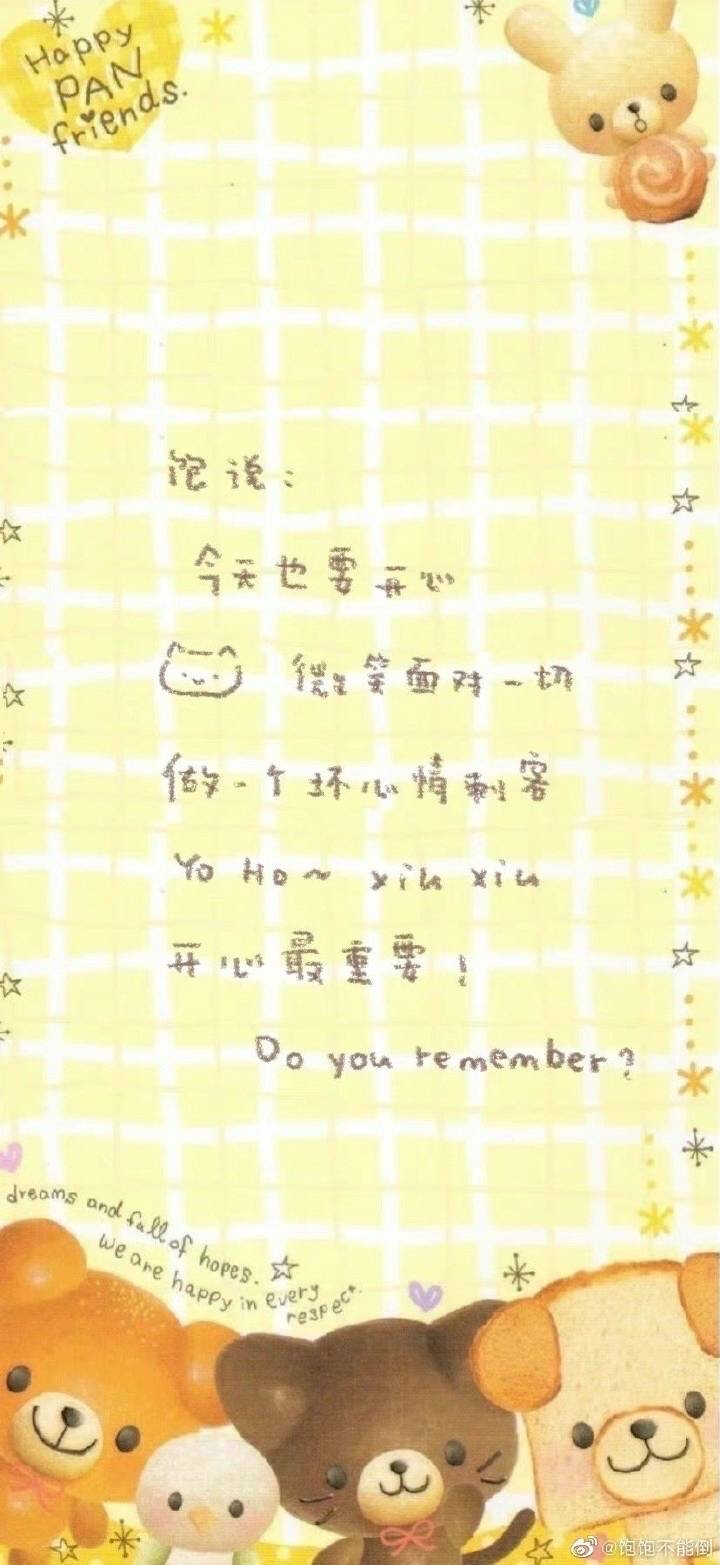 Happy
PAN
friends.
饱说：
今天也要开心
微笑面对一切
做一个坏心情刺客
Yo Ho~ xiu xiu
开心最重要！
Do you remember?
dreams and full of hopes.
we are happy in every
respect.
@饱饱不能倒